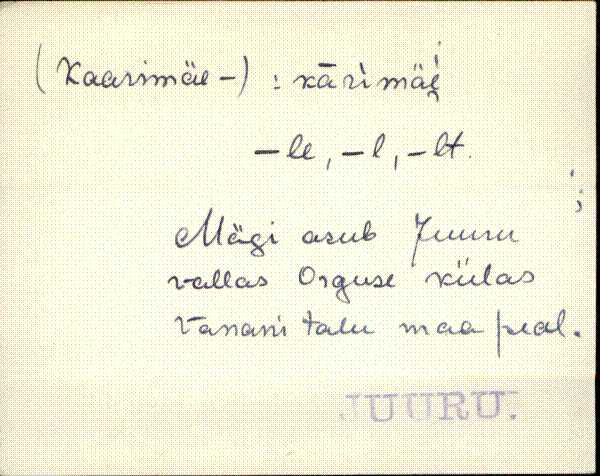 (Kaarimäe-) : kārimäe
-le, -l, -lt.
Mägi asub Juuru
vallas Orguse külas
Vanani talu maa peal.
JUURU.